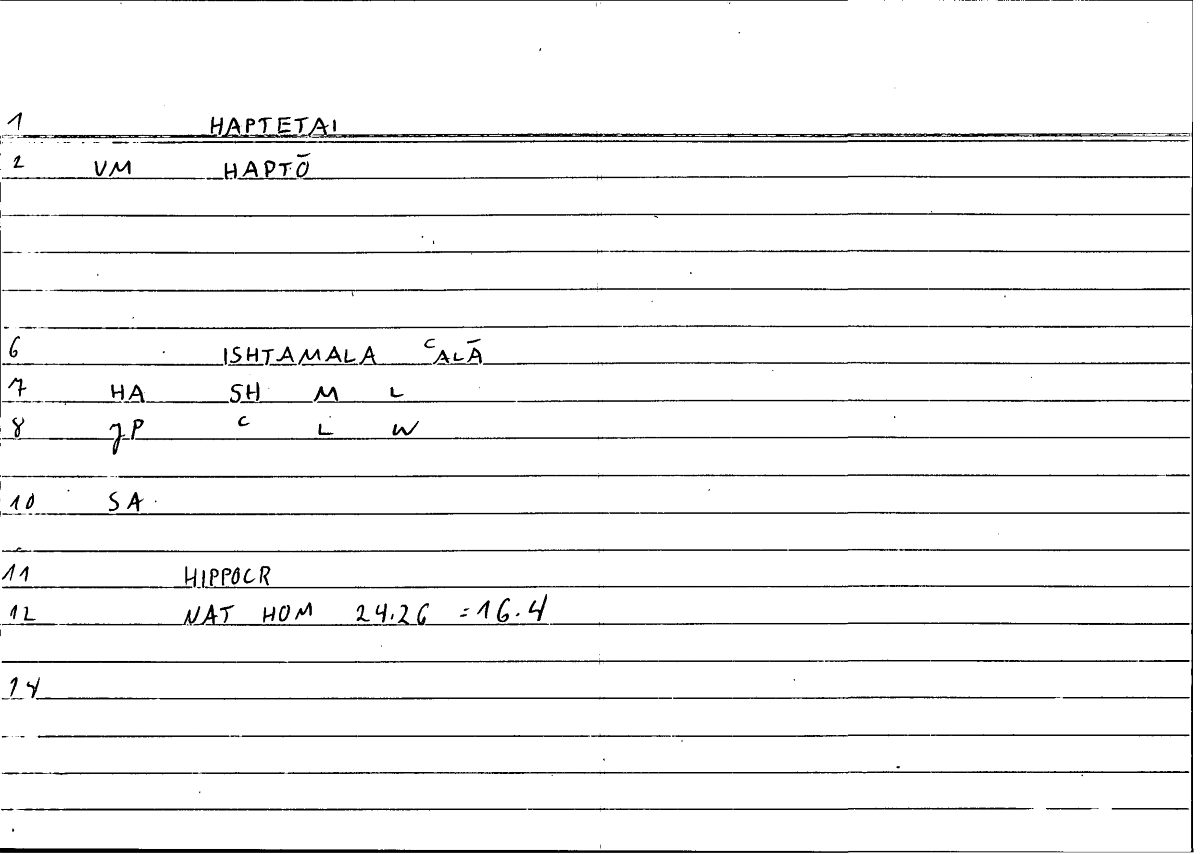 1 HAPTETAI
2 VM HAPTŌ
6 ISHTAMALA ʿALĀ
7 HA SH M L
8 JP ʿ L W
10 SA
11 HIPPOCR
12 NAT HOM 24.26 = 16.4
14